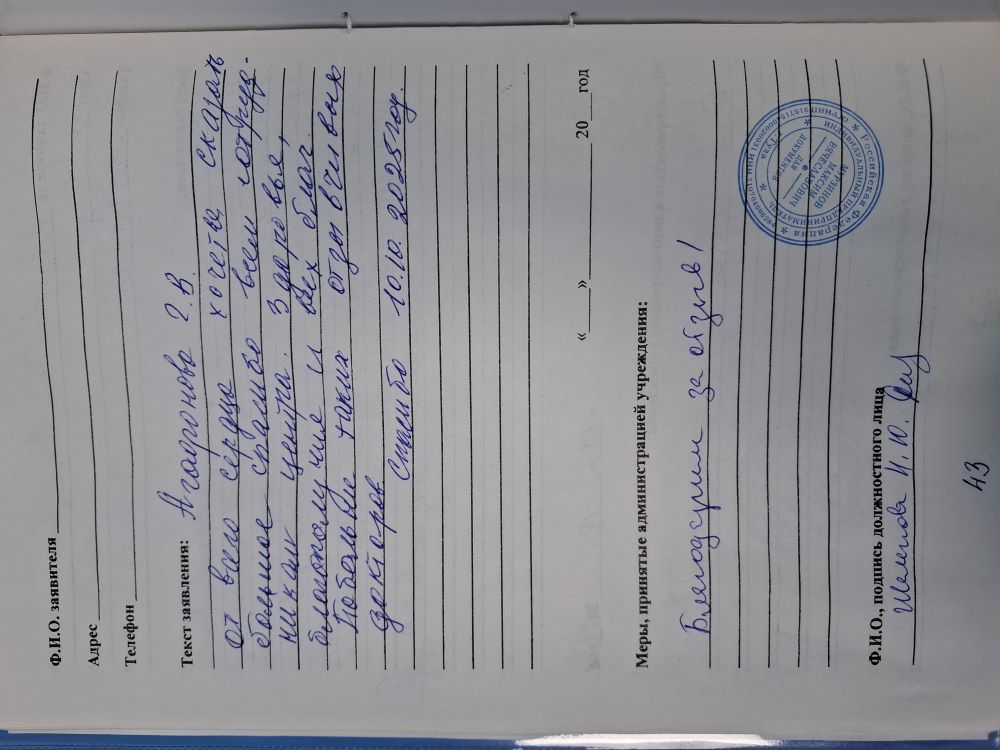 Ф.И.О. заявителя
Адрес
Телефон
Текст заявления: Агафонова Г.В.
от всего сердца хочется сказать
большое спасибо всем сотруд-
никам центра. Здоровья,
благополучия и всех благ.
Побольше таких отзывчивых
докторов
Спасибо 10.10.2025году.
«___» 20___год
Меры, принятые администрацией учреждения:
Благодарим за отзыв!
Ф.И.О., подпись должностного лица
И.Ю.
43
Российская Федерация
ИНДИВИДУАЛЬНЫЙ ПРЕДПРИНИМАТЕЛЬ
Тула
МАКСИМ
ВЯЧЕСЛАВОВИЧ
ДЛЯ
ДОКУМЕНТОВ